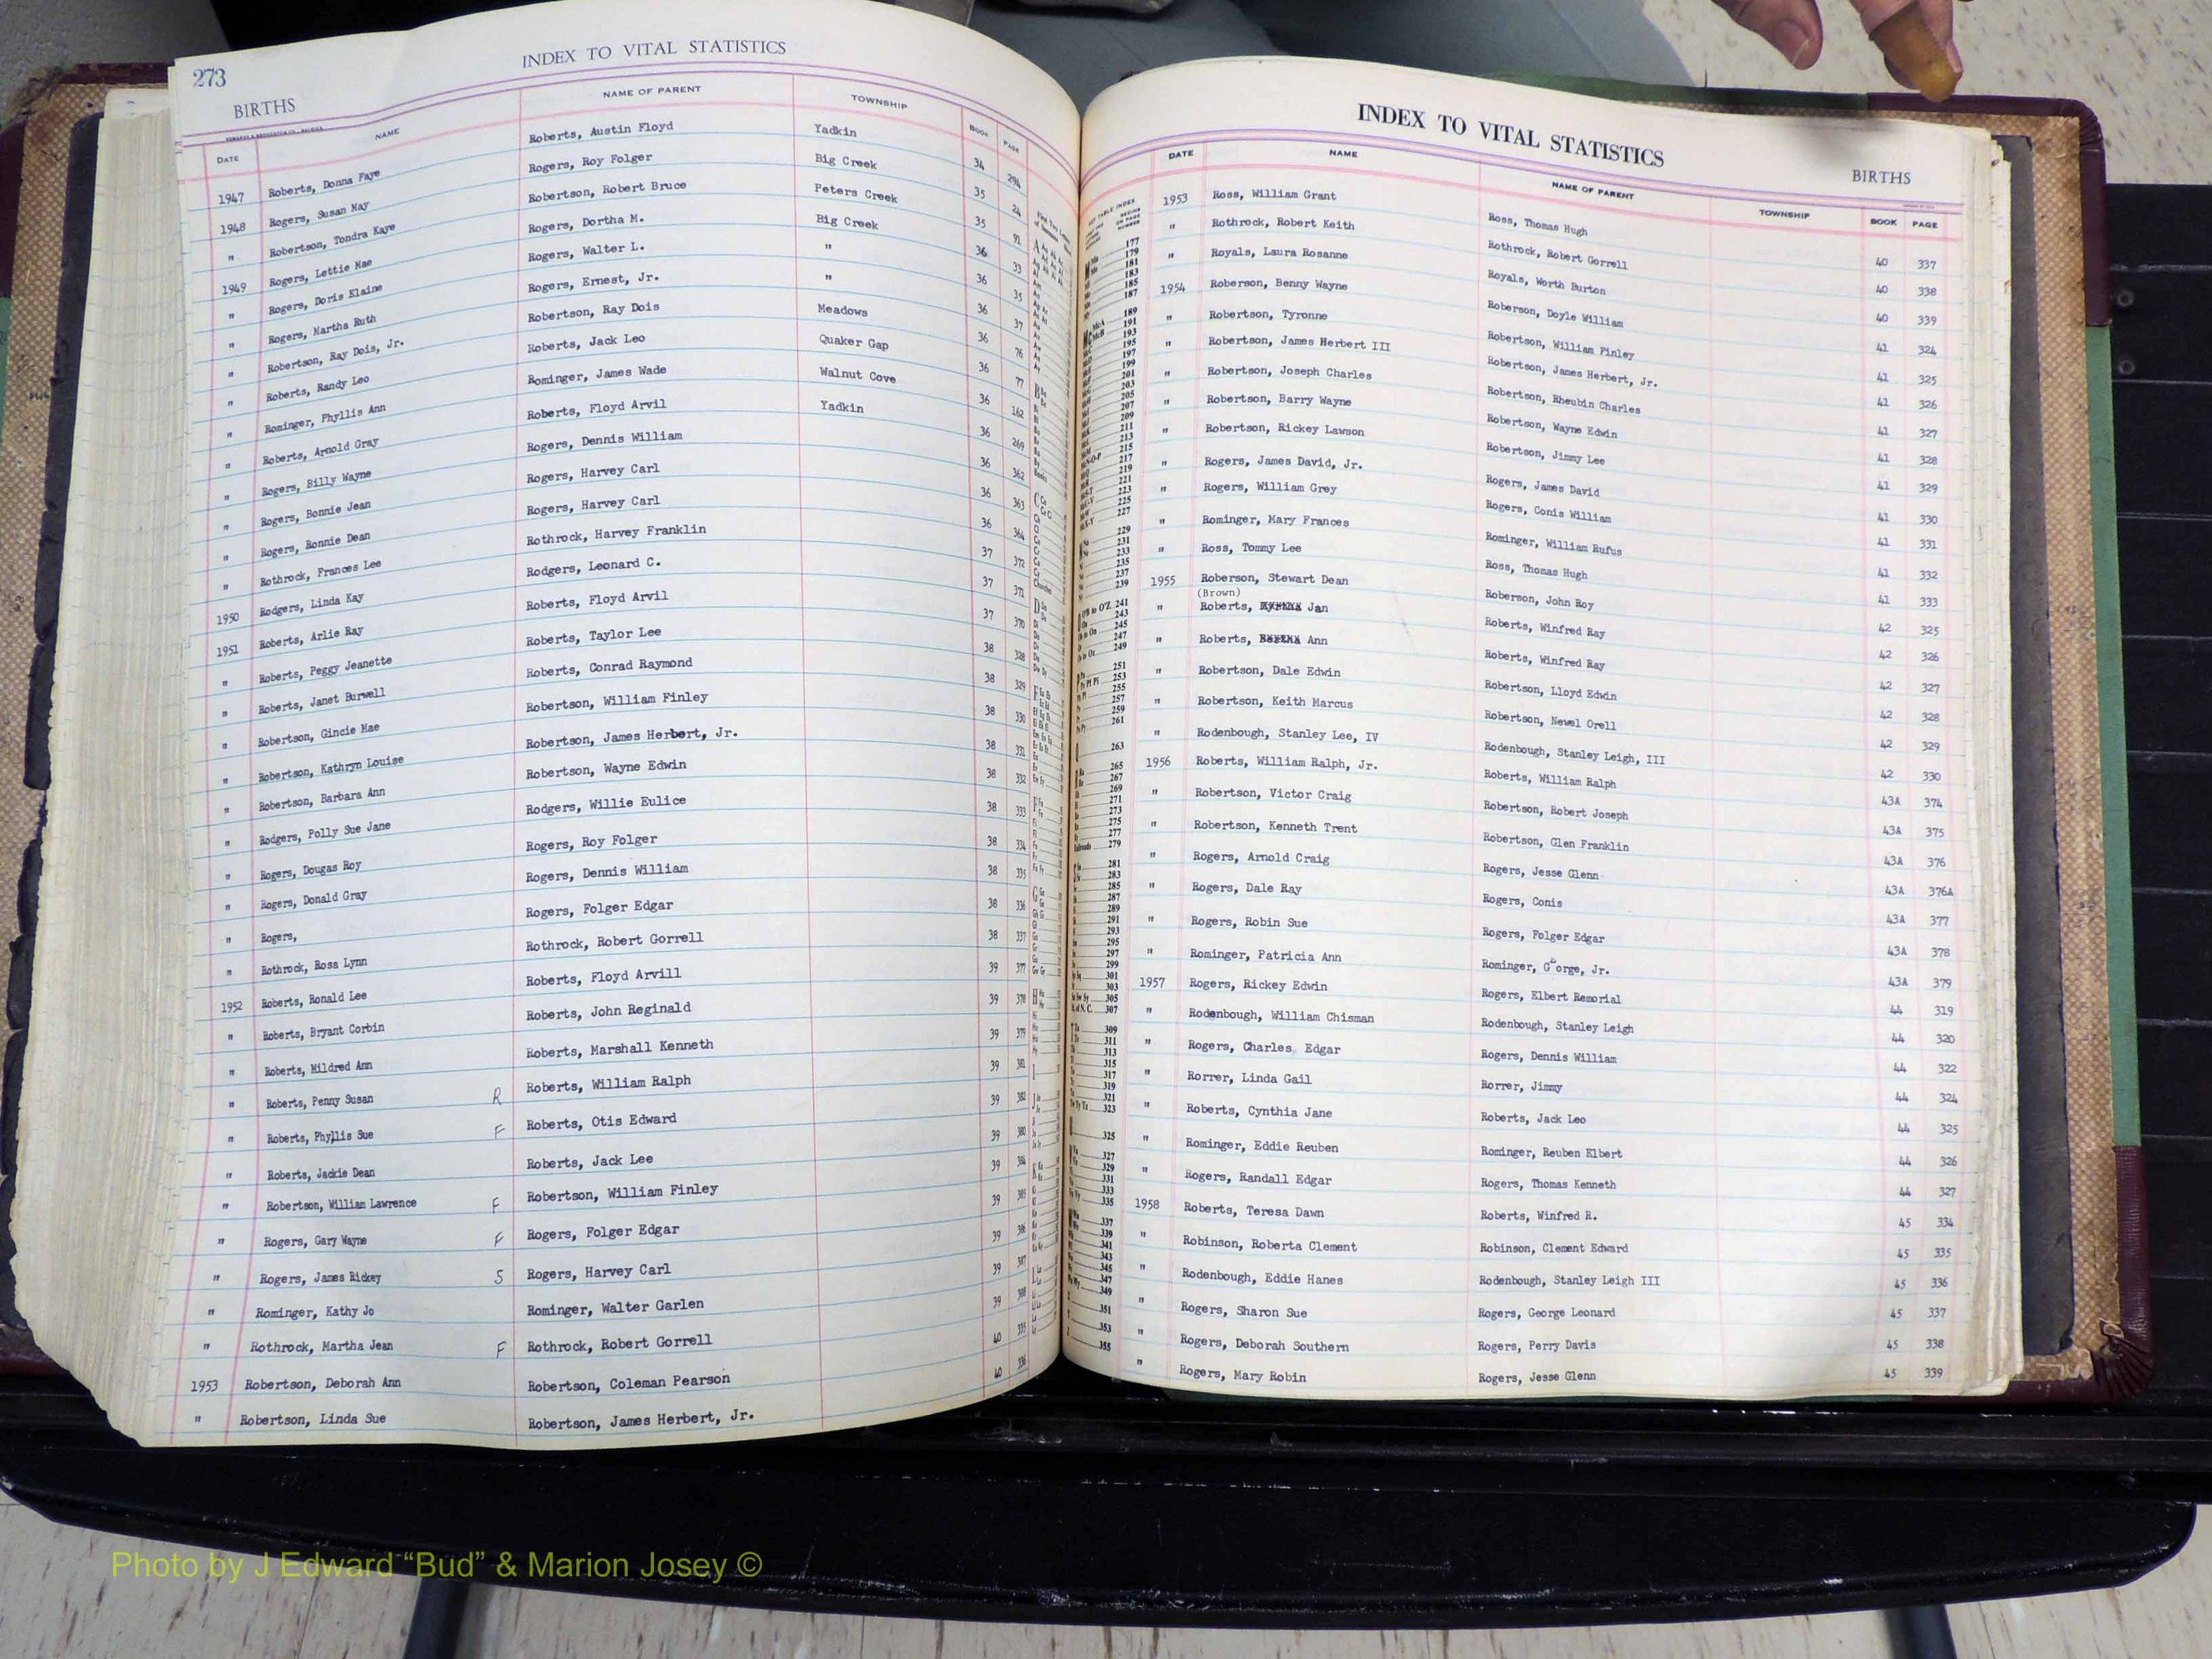 273
INDEX TO VITAL STATISTICS
BIRTHS
DATE NAME NAME OF PARENT TOWNSHIP BOOK PAGE
1947 Roberts, Donna Faye Roberts, Austin Floyd Yadkin 34 294
1948 Rogers, Susan May Rogers, Roy Folger Big Creek 35 24
" Robertson, Tondra Kaye Robertson, Robert Bruce Peters Creek 35 91
1949 Rogers, Lettie Mae Rogers, Dortha M. Big Creek 36 33
" Rogers, Doris Elaine Rogers, Walter L. " 36 35
" Rogers, Martha Ruth Rogers, Ernest, Jr. " 36 37
" Robertson, Ray Dois, Jr. Robertson, Ray Dois Meadows 36 76
" Roberts, Randy Leo Roberts, Jack Leo Quaker Gap 36 77
" Rominger, Phyllis Ann Rominger, James Wade Walnut Cove 36 162
" Roberts, Arnold Gray Roberts, Floyd Arvil Yadkin 36 269
" Rogers, Billy Wayne Rogers, Dennis William 36 362
" Rogers, Bonnie Jean Rogers, Harvey Carl 36 363
" Rogers, Ronnie Dean Rogers, Harvey Carl 36 364
" Rothrock, Frances Lee Rothrock, Harvey Franklin 37 372
1950 Rodgers, Linda Kay Rodgers, Leonard C. 37 371
1951 Roberts, Arlie Ray Roberts, Floyd Arvil 37 370
" Roberts, Peggy Jeanette Roberts, Taylor Lee 38 328
" Roberts, Janet Burwell Roberts, Conrad Raymond 38 329
" Robertson, Gincie Mae Robertson, William Finley 38 330
" Robertson, Kathryn Louise Robertson, James Herbert, Jr. 38 331
" Robertson, Barbara Ann Robertson, Wayne Edwin 38 332
" Rodgers, Polly Sue Jane Rodgers, Willie Eulice 38 333
" Rogers, Dougas Roy Rogers, Roy Folger 38 334
" Rogers, Donald Gray Rogers, Dennis William 38 335
" Rogers, Rogers, Folger Edgar 38 336
" Rothrock, Rosa Lynn Rothrock, Robert Gorrell 38 337
1952 Roberts, Ronald Lee Roberts, Floyd Arvill 39 377
" Roberts, Bryant Corbin Roberts, John Reginald 39 378
" Roberts, Mildred Ann Roberts, Marshall Kenneth 39 379
" Roberts, Penny Susan R Roberts, William Ralph 39 381
" Roberts, Phyllis Sue F Roberts, Otis Edward 39 382
" Roberts, Jackie Dean Roberts, Jack Lee 39 380
" Robertson, William Lawrence F Robertson, William Finley 39 384
" Rogers, Gary Wayne F Rogers, Folger Edgar 39 385
" Rogers, James Rickey S Rogers, Harvey Carl 39 386
" Rominger, Kathy Jo Rominger, Walter Garlen 39 387
" Rothrock, Martha Jean F Rothrock, Robert Gorrell 39 388
1953 Robertson, Deborah Ann Robertson, Coleman Pearson 40 335
" Robertson, Linda Sue Robertson, James Herbert, Jr. 40 336
INDEX TO VITAL STATISTICS
BIRTHS
DATE NAME NAME OF PARENT TOWNSHIP BOOK PAGE
1953 Ross, William Grant Ross, Thomas Hugh 40 337
" Rothrock, Robert Keith Rothrock, Robert Gorrell 40 338
" Royals, Laura Rosanne Royals, Worth Burton 40 339
1954 Roberson, Benny Wayne Roberson, Doyle William 41 324
" Robertson, Tyronne Robertson, William Finley 41 325
" Robertson, James Herbert III Robertson, James Herbert, Jr. 41 326
" Robertson, Joseph Charles Robertson, Rheubin Charles 41 327
" Robertson, Barry Wayne Robertson, Wayne Edwin 41 328
" Robertson, Rickey Lawson Robertson, Jimmy Lee 41 329
" Rogers, James David, Jr. Rogers, James David 41 330
" Rogers, William Grey Rogers, Conis William 41 331
" Rominger, Mary Frances Rominger, William Rufus 41 332
" Ross, Tommy Lee Ross, Thomas Hugh 41 333
1955 Roberson, Stewart Dean Roberson, John Roy 42 325
(Brown)
" Roberts, Jan Roberts, Winfred Ray 42 326
" Roberts, Ann Roberts, Winfred Ray 42 327
" Robertson, Dale Edwin Robertson, Lloyd Edwin 42 328
" Robertson, Keith Marcus Robertson, Newel Orell 42 329
" Rodenbough, Stanley Lee, IV Rodenbough, Stanley Leigh, III 42 330
1956 Roberts, William Ralph, Jr. Roberts, William Ralph 43A 374
" Robertson, Victor Craig Robertson, Robert Joseph 43A 375
" Robertson, Kenneth Trent Robertson, Glen Franklin 43A 376
" Rogers, Arnold Craig Rogers, Jesse Glenn 43A 376A
" Rogers, Dale Ray Rogers, Conis 43A 377
" Rogers, Robin Sue Rogers, Folger Edgar 43A 378
" Rominger, Patricia Ann Rominger, George, Jr. 43A 379
1957 Rogers, Rickey Edwin Rogers, Elbert Remorial 44 319
" Rodenbough, William Chisman Rodenbough, Stanley Leigh 44 320
" Rogers, Charles Edgar Rogers, Dennis William 44 322
" Rorrer, Linda Gail Rorrer, Jimmy 44 324
" Roberts, Cynthia Jane Roberts, Jack Leo 44 325
" Rominger, Eddie Reuben Rominger, Reuben Elbert 44 326
" Rogers, Randall Edgar Rogers, Thomas Kenneth 44 327
1958 Roberts, Teresa Dawn Roberts, Winfred R. 45 334
" Robinson, Roberta Clement Robinson, Clement Edward 45 335
" Rodenbough, Eddie Hanes Rodenbough, Stanley Leigh III 45 336
" Rogers, Sharon Sue Rogers, George Leonard 45 337
" Rogers, Deborah Southern Rogers, Perry Davis 45 338
" Rogers, Mary Robin Rogers, Jesse Glenn 45 339
Photo by J Edward “Bud” & Marion Josey ©